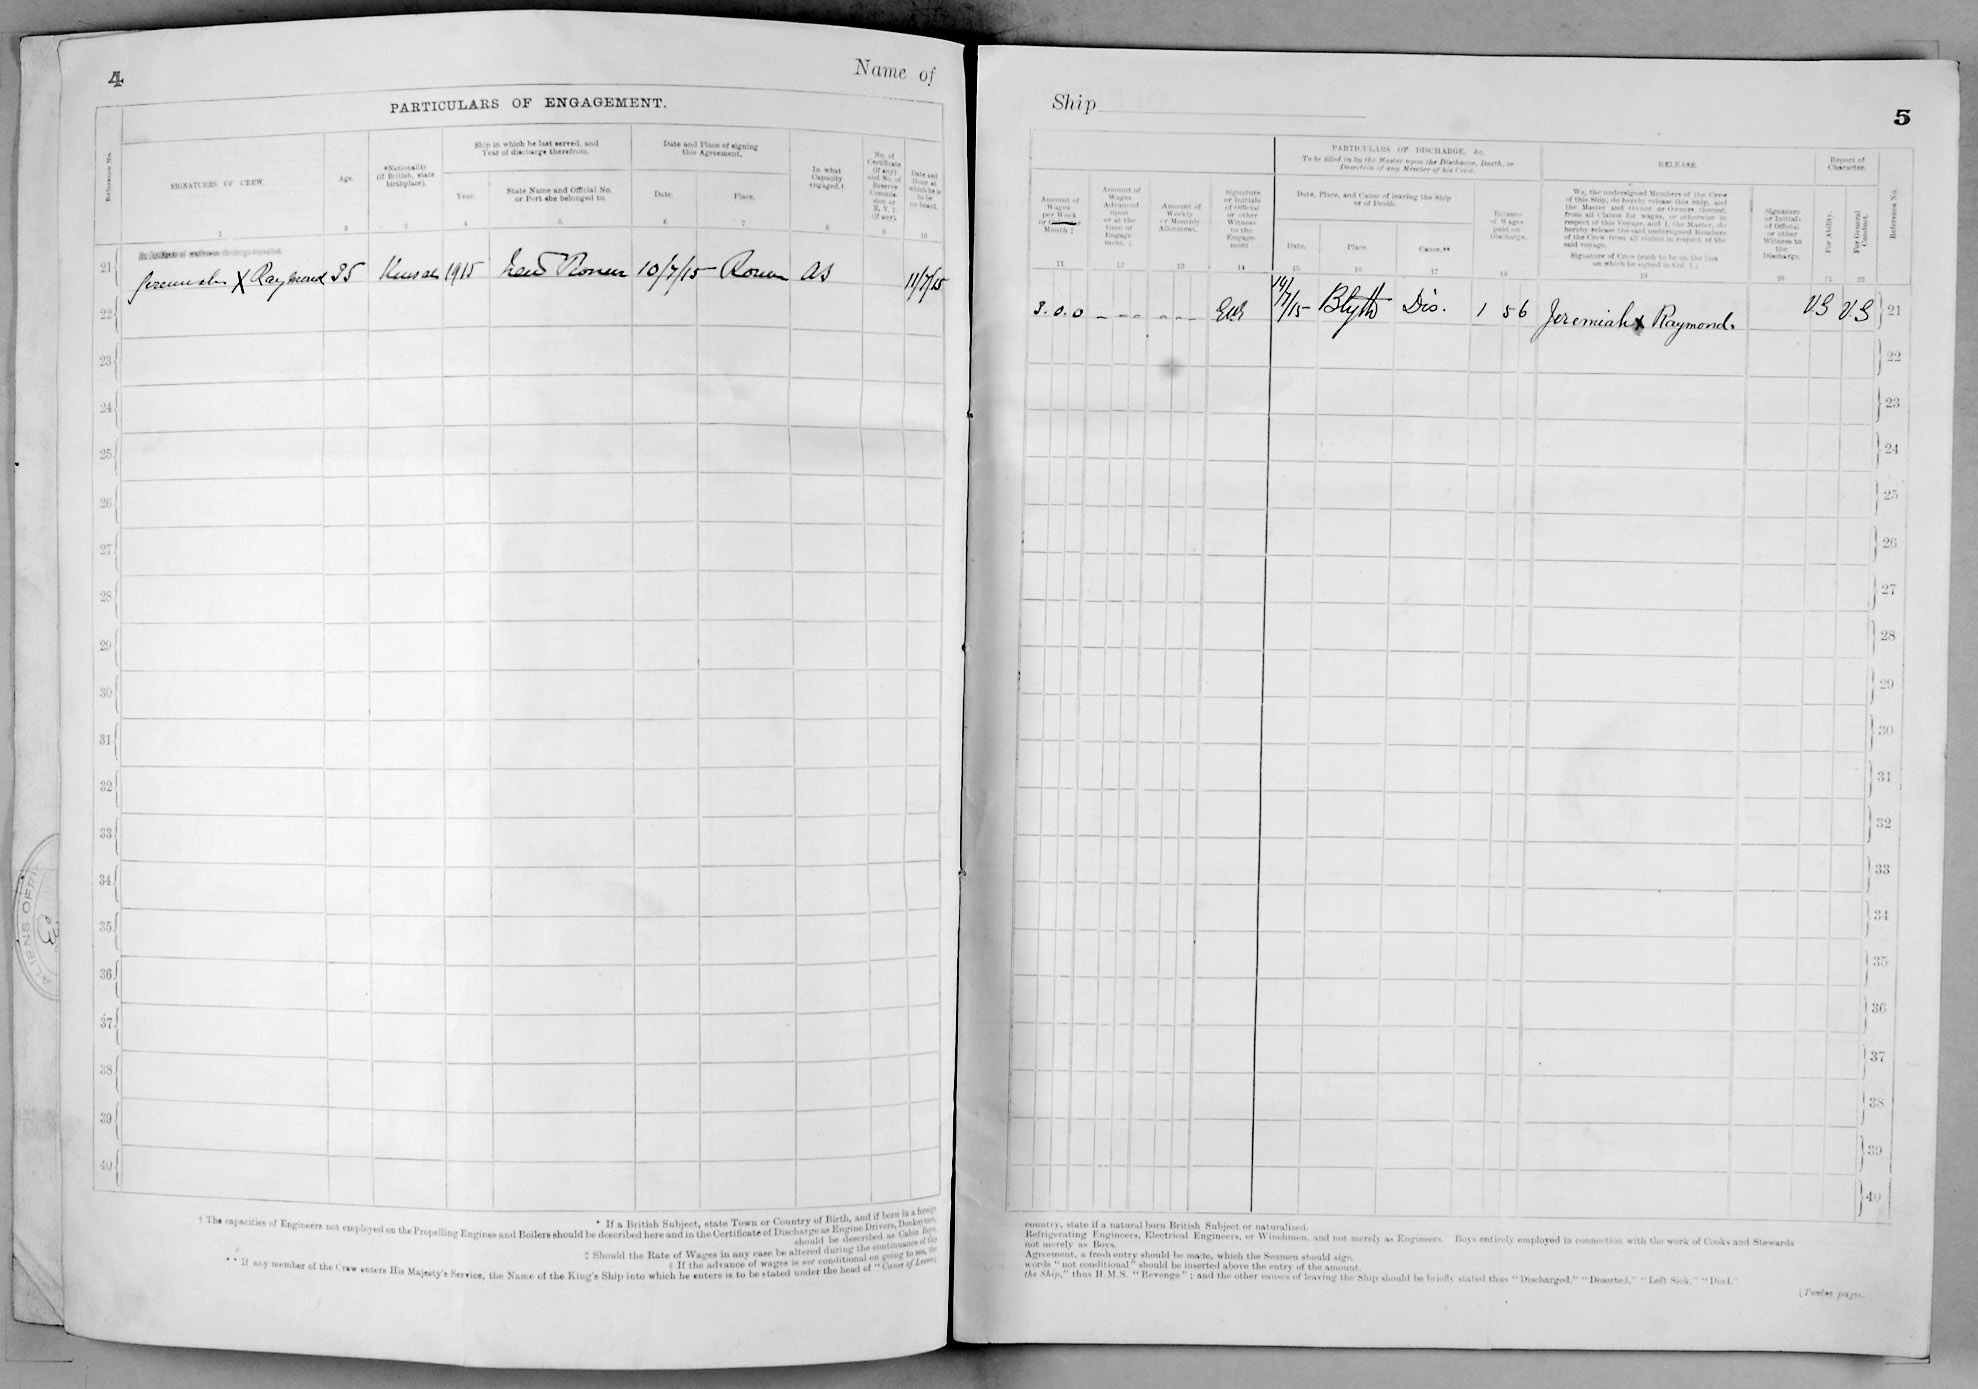 4
Name of
PARTICULARS OF ENGAGEMENT.
Reference No.
SIGNATURES OF CREW.
Age.
*Nationality
(if British, state
birthplace).
Ship in which he last served, and
Year of discharge therefrom.
Year.
State Name and Official No.
or Port she belonged to.
Date and Place of signing
this Agreement.
Date.
Place.
In what
Capacity
engaged.†
No. of
Certificate
(if any)
and No. of
Reserve
Commis-
sion or
R. V. 2
(if any).
Date and
Hour at
which he is
to be
on board.
1
2
3
4
5
6
7
8
9
10
21
Jeremiah X Raymond 35 Kinsale 1915 Rouen 10/7/15 Rouen AB 11/7/15
22
23
24
25
26
27
28
29
30
31
32
33
34
35
36
37
38
39
40
* If a British Subject, state Town or Country of Birth, and if born in a foreign
† The capacities of Engineers not employed on the Propelling Engines and Boilers should be described here and in the Certificate of Discharge as Engine Drivers, Donkeymen,
should be described as Cabin Boys,
‡ Should the Rate of Wages in any case be altered during the continuance of this
§ If the advance of wages is not conditional on going to sea, the
** If any member of the Crew enters His Majesty's Service, the Name of the King's Ship into which he enters is to be stated under the head of "Cause of Leaving
ALIENS OFFI
Ship
5
PARTICULARS OF DISCHARGE, &c.
To be filled in by the Master upon the Discharge, Death, or
Desertion of any Member of his Crew.
RELEASE.
Report of
Character.
Amount of
Wages
per Week
or Calendar
Month ‡
Amount of
Wages
Advanced
upon
or at the
time of
Engage
ment. ‡
Amount of
Weekly
or Monthly
Allotment.
Signature
or Initials
of Official
or other
Witness
to the
Engage-
ment
Date, Place, and Cause of leaving the Ship
or of Death.
Date.
Place.
Cause.**
Balance
of Wages
paid on
Discharge.
We, the undersigned Members of the Crew
of this Ship, do hereby release this Ship, and
the Master and Owner or Owners thereof,
from all Claims for wages, or otherwise in
respect of this Voyage, and I, the Master, do
hereby release the said undersigned Members
of the Crew from all claims in respect of the
said voyage.
Signature of Crew (each to be on the line
on which he signed in Col. 1.)
Signature
or Initials
of Official
or other
Witness to
the
Discharge.
For Ability.
For General
Conduct.
Reference No.
11
12
13
14
15
16
17
18
19
20
21
22
3.0.0 19/7/15 Blyth Dis. 1 5 6 Jeremiah X Raymond. VG V.G 21
22
23
24
25
26
27
28
29
30
31
32
33
34
35
36
37
38
39
40
country, state if a natural born British Subject or naturalized.
Refrigerating Engineers, Electrical Engineers, or Winchmen, and not merely as Engineers. Boys entirely employed in connection with the work of Cooks and Stewards
not merely as Boys.
Agreement, a fresh entry should be made, which the Seamen should sign.
words "not conditional" should be inserted above the entry of the amount.
the Ship," thus H.M.S. "Revenge"; and the other causes of leaving the Ship should be briefly stated thus "Discharged," "Deserted," "Left Sick," "Died."
[Twelve pages.